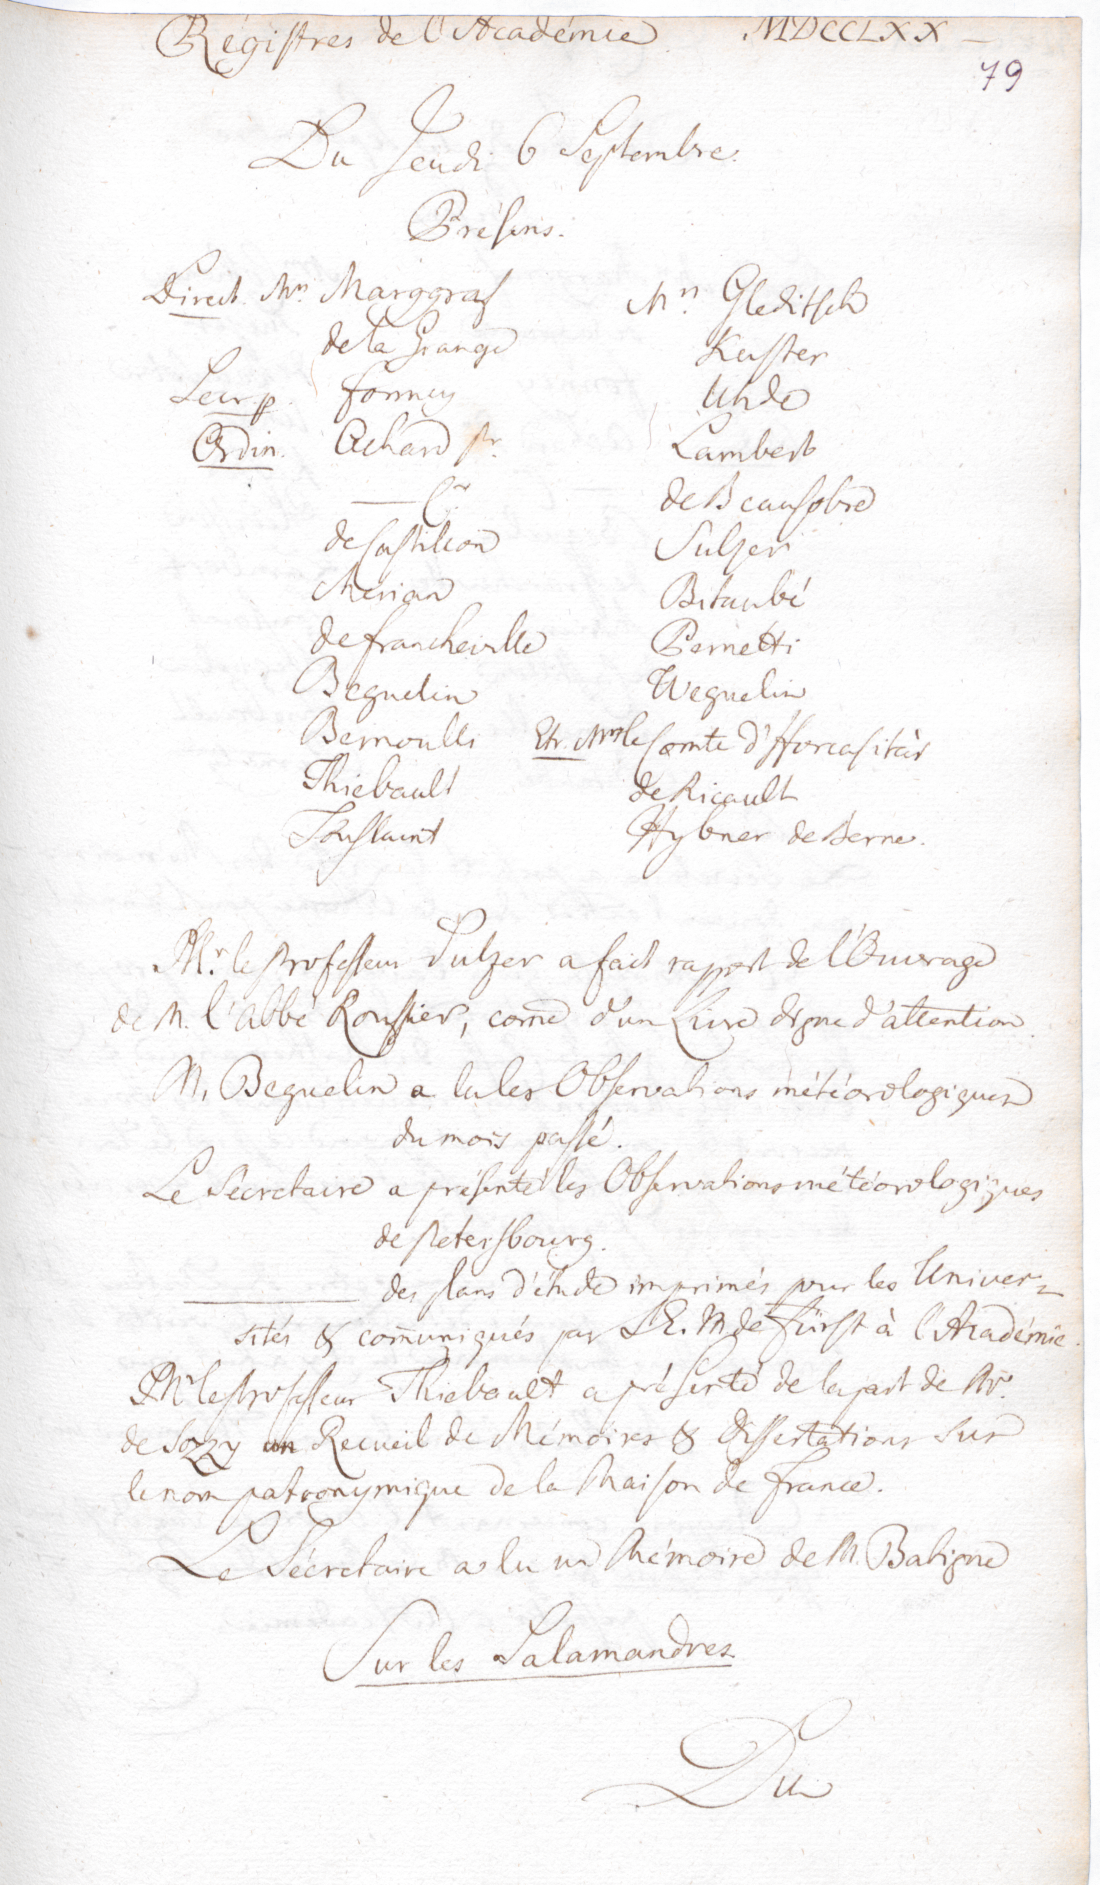 Régistres de l'Académie MDCCLXX
79
Du Jeudi 6 Septembre.
Présens.
Direct. Mrs Marggraf
de la Grange
Secr. p. Formey
Ordin. Achard pr.
de Castillon
Merian
de Francheville
Beguelin
Bernoulli
Thiebault
Toussaint
Mrs. Gleditsch
Kuster
Uhde
Lambert
de Beausobre
Sulzer
Bitaubé
Pernetti
Weguelin
Etr. Mrs le Comte
de Ricault
Hybner de Berne.
Mr. le Professeur Sulzer a fait rapport de l'Ouvrage
de M. l'abbé Roussier, come d'un Livre digne d'attention
M. Beguelin a lu les Observations météorologiques
du mois passé.
Le Sécretaire a présenté les Observations météorologiques
de Petersbourg.
des plans d'étude imprimés pour les Univer-
sités & comuniqués par S. E. M. de Fürst à l'Académie.
Mr le Professeur Thiebault a présenté de la part de Mr.
de Sozzy un Recueil de Mémoires & Dissertations sur
le nom patronymique de la Maison de France.
Le Sécretaire a lu un Mémoire de M. Batigne
Sur les Salamandres
Du